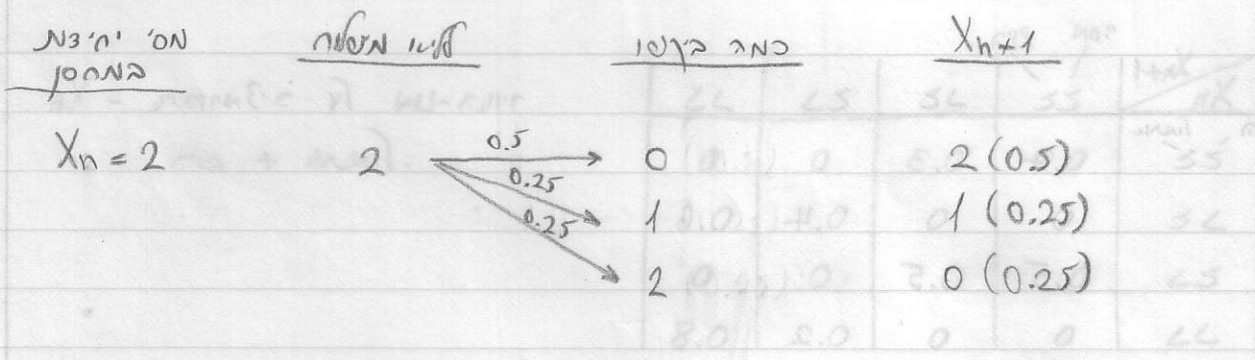 מס' יחידות במחסן  לאיו משלוח  כמה ביקשו  Xn+1
Xn = 2  2  0.5  0  2 (0.5)
0.25  1  1 (0.25)
0.25  2  0 (0.25)